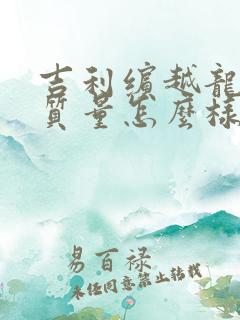 吉利缤越龍
質量怎麼樣
易百禄
未经同意禁止转载